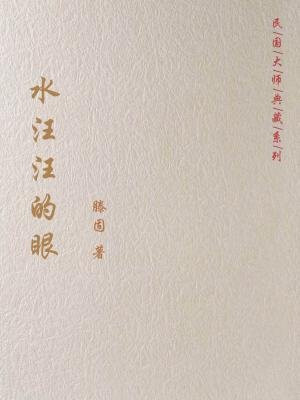 民|国|大|师|典|藏|系|列
滕固 著
水汪汪的眼